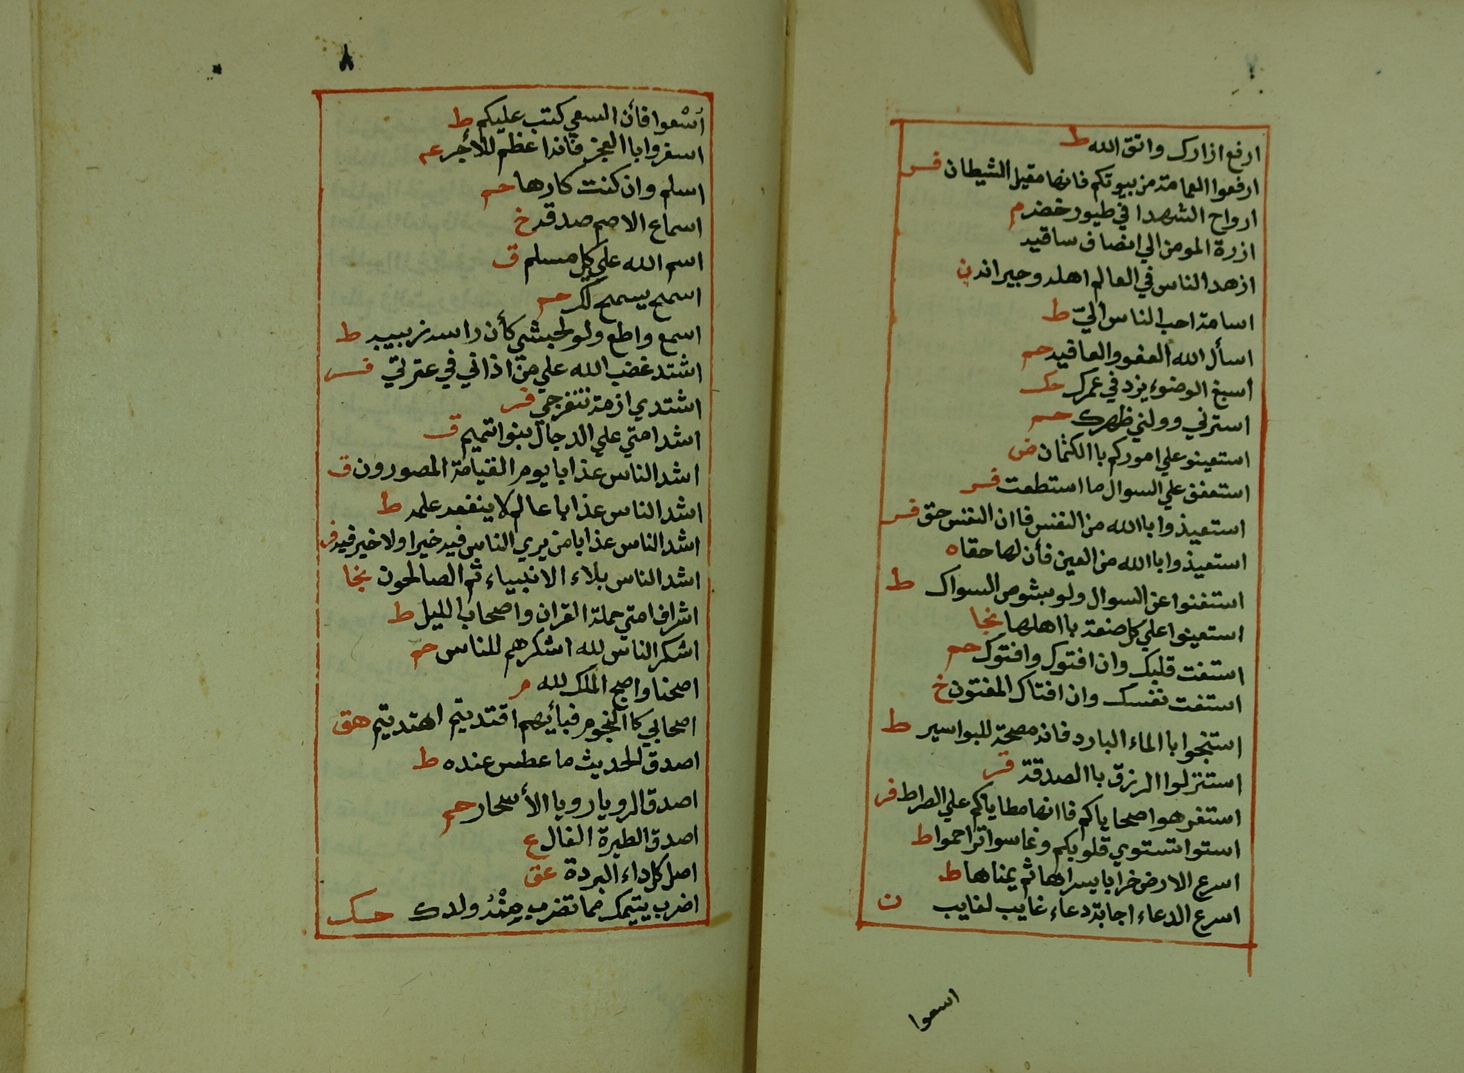 ٧
ارفع ازارك واتق الله ط
ارفعوا العمامة من بيوتكم فانها مقيل الشيطان فر
ارواح الشهدا في طيور خضر م
ازرة المومن الي انصاف ساقيه
ازهد الناس في العالم اهله وجيرانه ن
اسامة احب الناس اليّ ط
اسأل الله العفو والعافيه حم
اسبغ الوضوء يزد في عمرك حك
استرني وولني ظهرك حم
استعينو علي اموركم باالكتمان ض
استعفف علي السوال ما استطعت فر
استعيذوا باالله من النفس فاان النفس حق فر
استعيذوا باالله من العين فأن لها حقا ه
استغنوا عن السوال ولو بشوص السواك ط
استعينوا علي كل صنعة بااهلها نجا
استفت قلبك وان افتوك وافتوك حم
استفت نفسك وان افتاك المفتون خ
استنجوا باالماء البارد فانه مصحة للبواسير ط
استنزلوا الرزق باالصدقة فر
استفرهوا ضحاياكم فاانها مطاياكم علي الصراط فر
استوا تستوي قلوبكم وتماسوا تراحموا ط
اسرع الارض خرابا يسراها ثم يمناها ط
اسرع الدعاء اجابة دعاء غايب لغايب ن
اسعوا
٨
أسْعوا فأن السعي كتب عليكم ط
اسفروا باالفجر فانه اعظم للأجر عم
اسلم وان كنت كارها حم
اسماع الاصم صدقه خ
اسم الله علي كل مسلم ق
اسمح يسمح لك حم
اسمع واطع ولو لحبشي كأن راسه زبيبه ط
اشتد غضب الله علي من اذاني في عترتي فر
اشتدي ازمة تنفرجي فر
اشد امتي علي الدجال بنوا تميم ق
اشد الناس عذابا يوم القيامة المصورون ق
اشد الناس عذابا عالم لا ينفعه علمه ط
اشد الناس عذابا من يري الناس فيه خيرا ولا خير فيه فر
اشد الناس بلاء الانبياء ثم الصالحون نجا
اشراف امتي حملة القران واصحاب الليل ط
اشكر الناس لله اشكرهم للناس حم
اصحنا واصبح الملك لله م
اصحابي كاالنجوم فبأيهم اقتديتم اهتديتم هق
اصدق الحديث ما عطس عنده ط
اصدق الرويا رويا الأسحار حم
اصدق الطيرة الفال ع
اصل كل داء البردة عق
اضرب يتيمك مما تضرب مِنْهُ ولدك حك